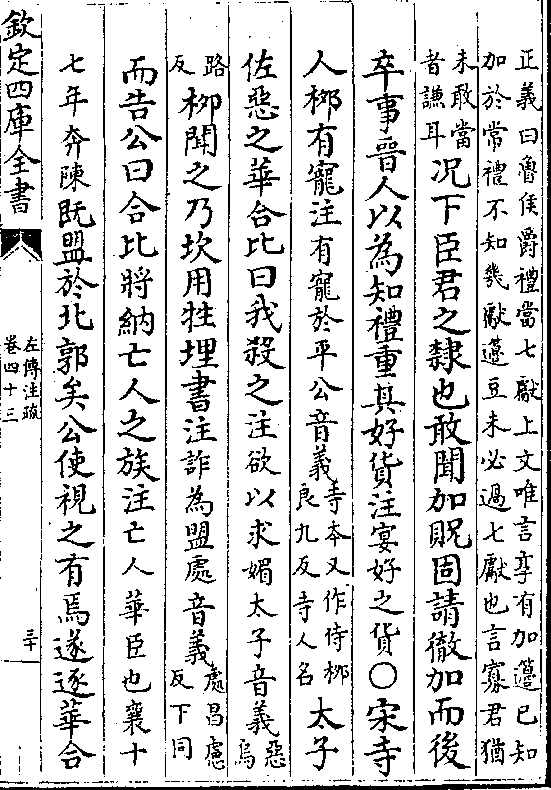 正義曰魯侯爵禮當七獻上文唯言享有加籩已知
加於常禮不知幾獻籩豆未必過七獻也言寡君猶
未敢當
者謙耳
況下臣君之隸也敢聞加貺固請徹加而後
卒事晉人以為知禮重其好貨注宴好之貨○宋寺
人栁有寵注有寵於平公音義
寺本又作侍栁
良九反寺人名
太子
佐惡之華合比曰我殺之注欲以求媚太子音義
惡
烏
路
反
栁聞之乃坎用牲埋書注詐為盟處音義
處昌慮
反下同
而告公曰合比將納亡人之族注亡人華臣也襄十
七年奔陳既盟於北郭矣公使視之有焉遂逐華合
欽定四庫全書
左傳注疏
卷四十三
三十